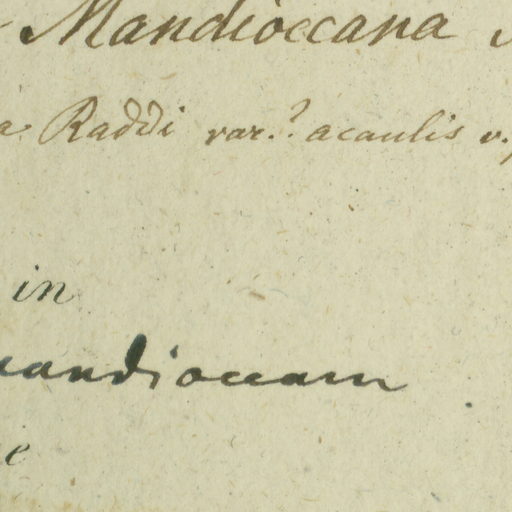 Mandioccana
a Raddi var.? acaulis v.
in
andioccam
e